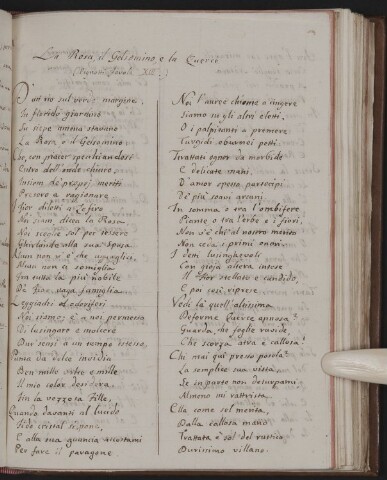 La Rosa, il Gelsomino, e la Quercia
D'un rio sul verde margine,
In florido giardino
In siepe amena stavano
La Rosa, e il Gelsomino:
Or, con piacer specchiandosi
Entro dell'onde chiare
Insiem de' propj meriti
Presero a ragionare
Fior diletti a Zefiro
Noi siam, dicea la Rosa
Noi sceglie sol per tessere
Ghirlande alla sua sposa
Niun non v'è che agguaglici,
Niun non ci somiglia
Fra tutta la più nobile
De' fior vaga famiglia
Leggiadri ed odoriferi
Noi siamo; è a noi permesso
Di lusingare e molcere
Duo sensi a un tempo istesso,
Punta da dolce invidia
Ben mille volte e mille
Il mio color desidera
In la vezzosa Fille,
Quando davanti al lucido
Fido cristal si pone,
E alla sua guancia accostami
Per fare il paragone
Noi l'auree chiome a cingere
Siamo su gli altri eletti,
O i palpitanti a premere
Turgidi eburnei petti:
Trattati ognor da morbide
E delicate mani,
D'amor spesso partecipi
De' più soavi arcani
In somma o tra l'ombrifere
Piante o tra l'erbe e i fiori,
Non v'è che al nostro merito
Non ceda i primi onori.
I dem lusinghevoli
Con gioja altera intese
Il Fior stellato e candido,
E poi così riprese
Vedi là quell'altissima
Deforme Querce annosa?
Guarda che foglie ruvide,
Che scorza atra e callosa!
Che mai qui presso posela?
La semplice sua vista,
Se in parte non deturpami
Almeno mi rattrista
Ella come sel merta,
Dalla callosa mano
Trattata è sol del rustico,
Durissimo villano.